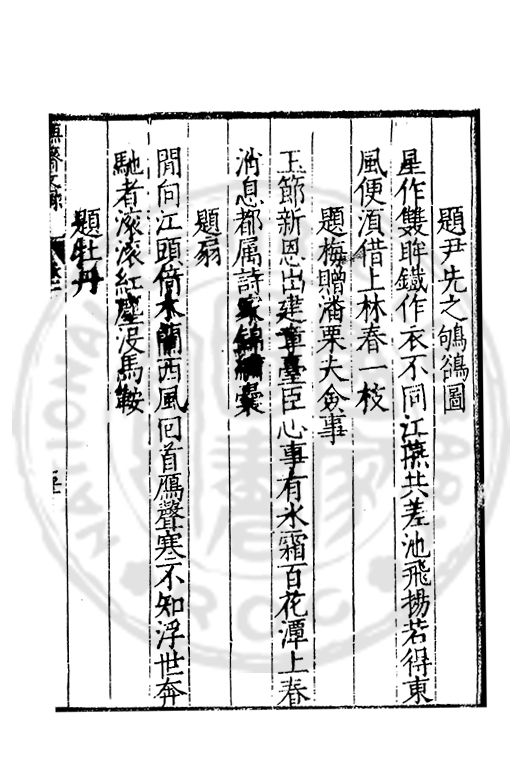 題尹先之鴝鵒圖
星作雙眸鐵作衣不同江燕共差池飛揚若得東
風便湏借上林春一枝
題梅贈潘栗夫僉事
玉節新恩出建章臺臣心事有冰霜百花潭上春
消息都属詩家錦繡囊
題扇
閒向江頭倚木蘭西風回首鴈聲寒不知浮世奔
馳者滚滚紅塵没馬鞍
題牡丹